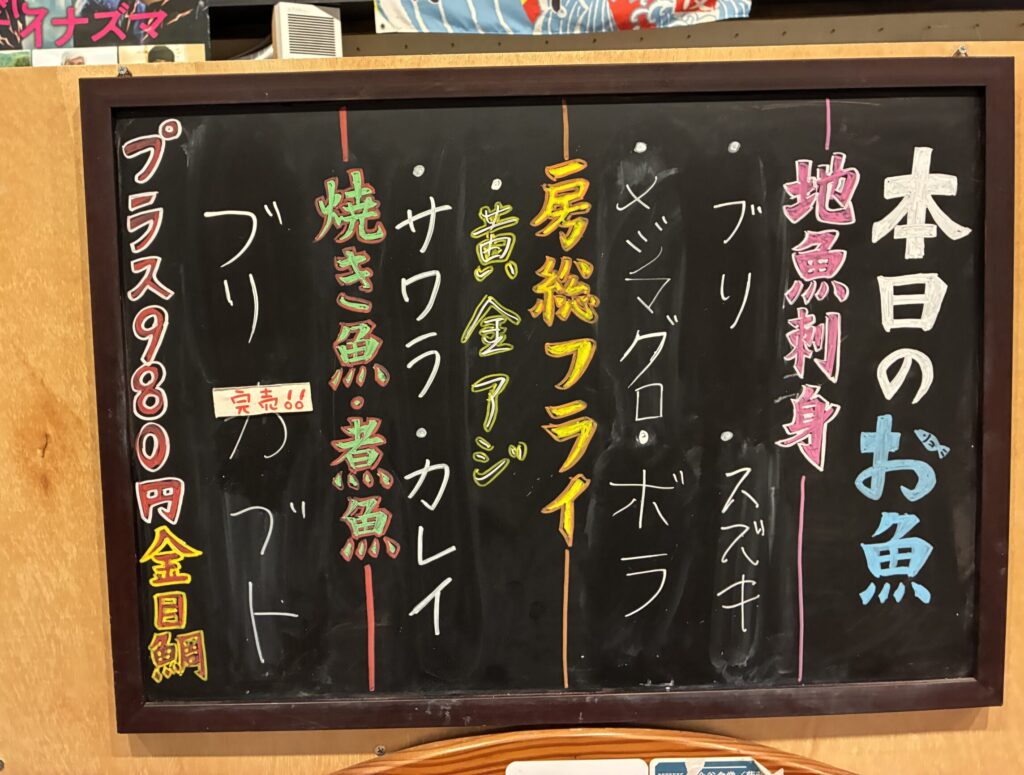 本日のお魚
地魚刺身
・ブリ ・スズキ
・メジマグロ・ボラ
房総フライ
・黄金アジ
・サワラ・カレイ
焼き魚・煮魚
ブリカブト
完売!!
プラス980円金目鯛
イナズマ